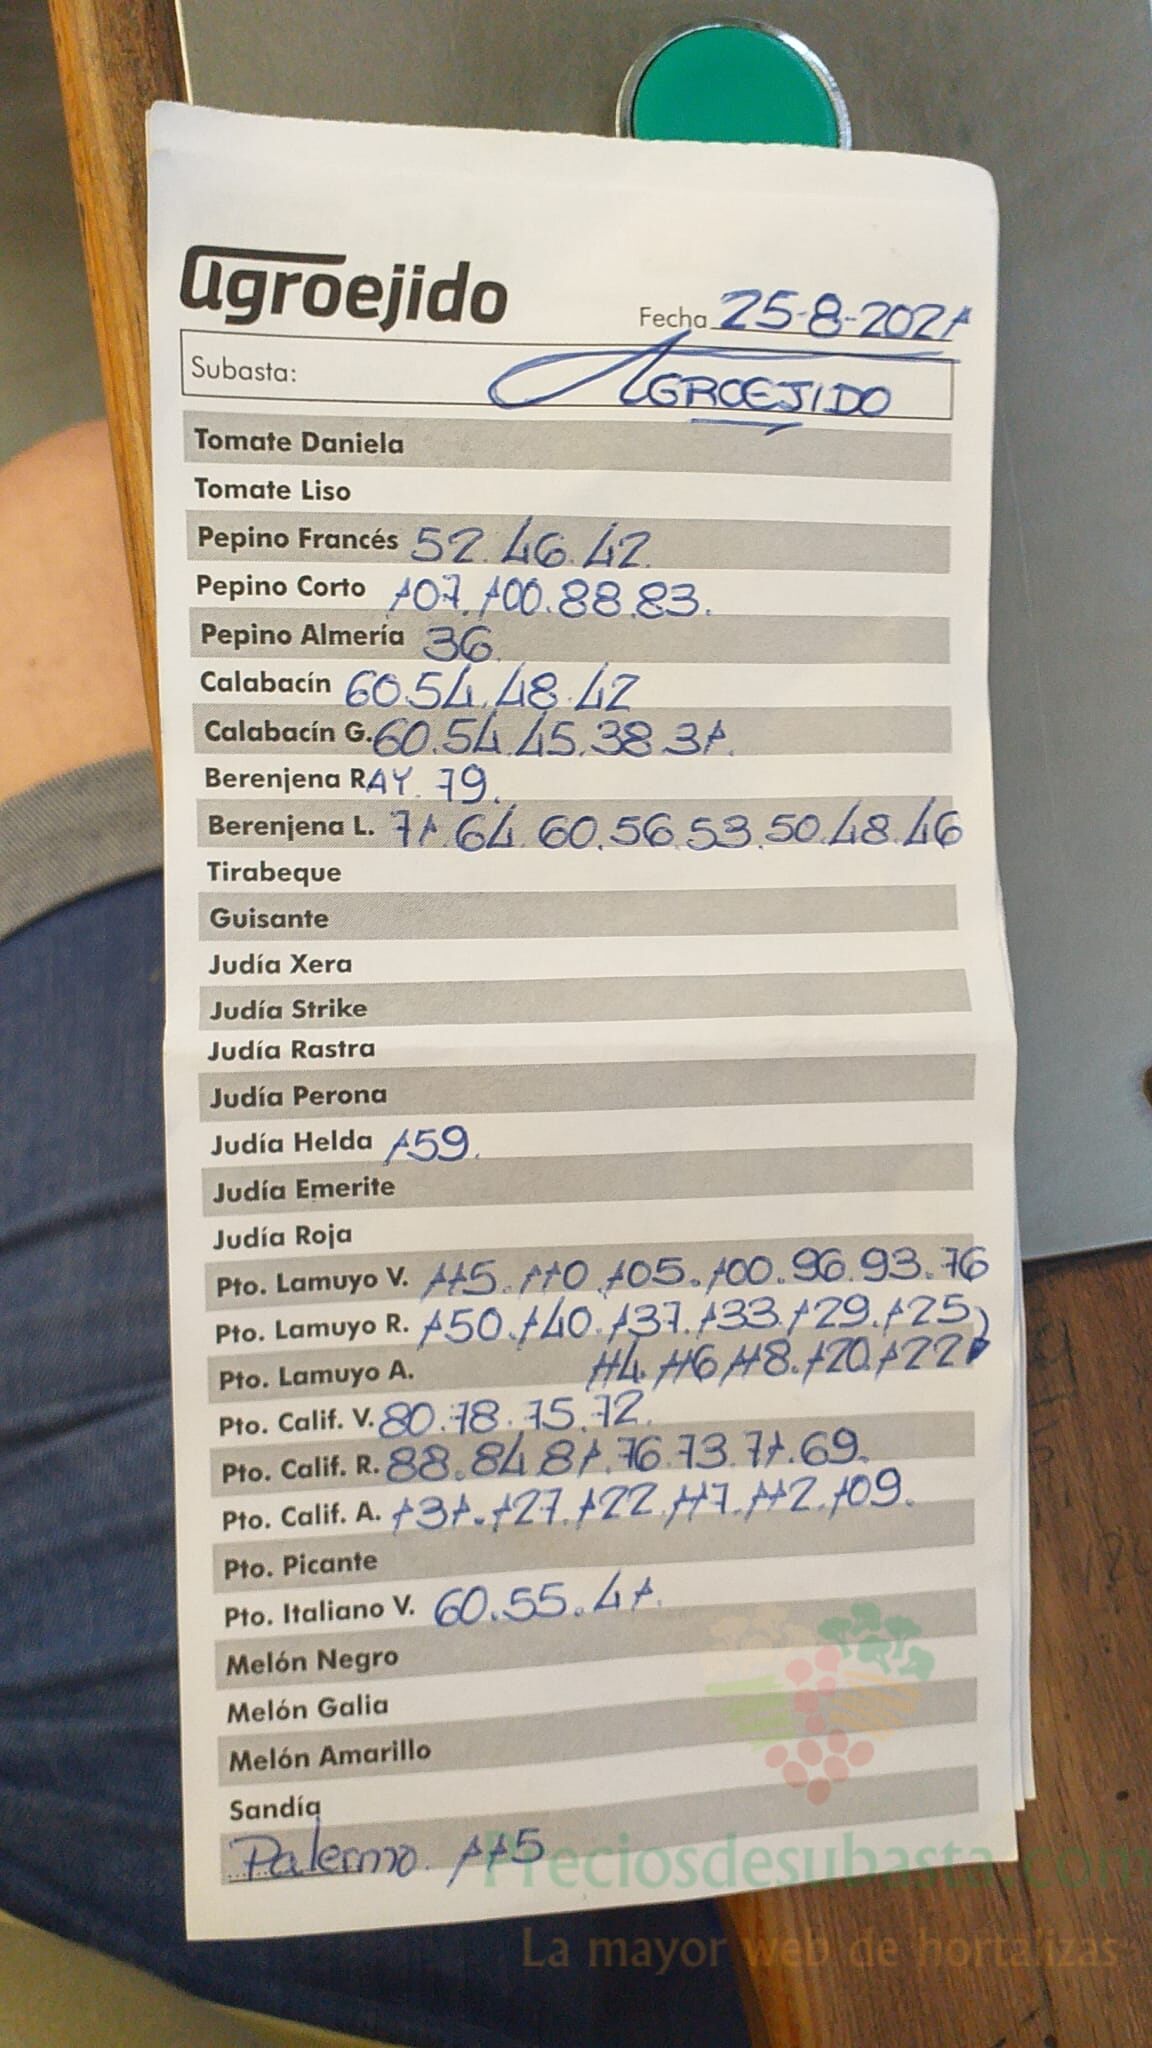 agroejido
Fecha 25-8-2021
Subasta: AGROEJIDO
Tomate Daniela
Tomate Liso
Pepino Francés 52.46.42.
Pepino Corto 107.100.88.83.
Pepino Almería 36.
Calabacín 60.54.48.42
Calabacín G. 60.54.45.38.31.
Berenjena RAY. 79.
Berenjena L. 71.64.60.56.53.50.48.46
Tirabeque
Guisante
Judía Xera
Judía Strike
Judía Rastra
Judía Perona
Judía Helda 159.
Judía Emerite
Judía Roja
Pto. Lamuyo V. 115.110.105.100.96.93.76
Pto. Lamuyo R. 150.140.137.133.129.125
Pto. Lamuyo A. 114.116.118.120.122
Pto. Calif. V. 80.78.75.72.
Pto. Calif. R. 88.84.81.76.73.71.69.
Pto. Calif. A. 131.127.122.117.112.109.
Pto. Picante
Pto. Italiano V. 60.55.41.
Melón Negro
Melón Galia
Melón Amarillo
Sandía
Palermo. 115
Preciosdesubasta.com
La mayor web de hortalizas